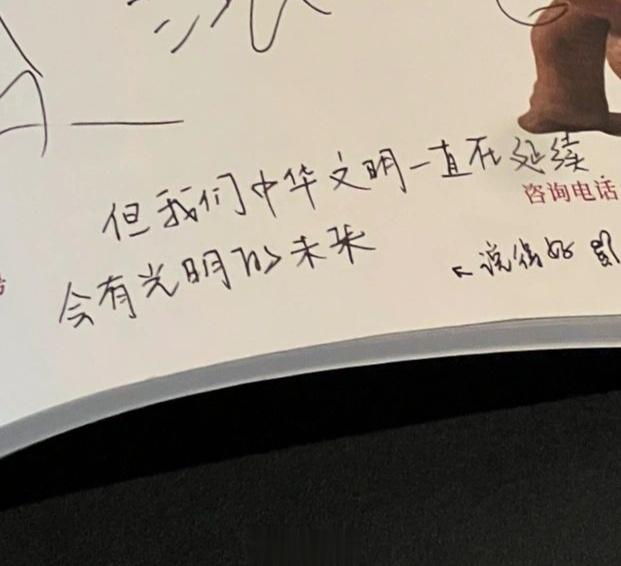 但我们中华文明一直在延续
咨询电话
会有光明的未来
←说得好